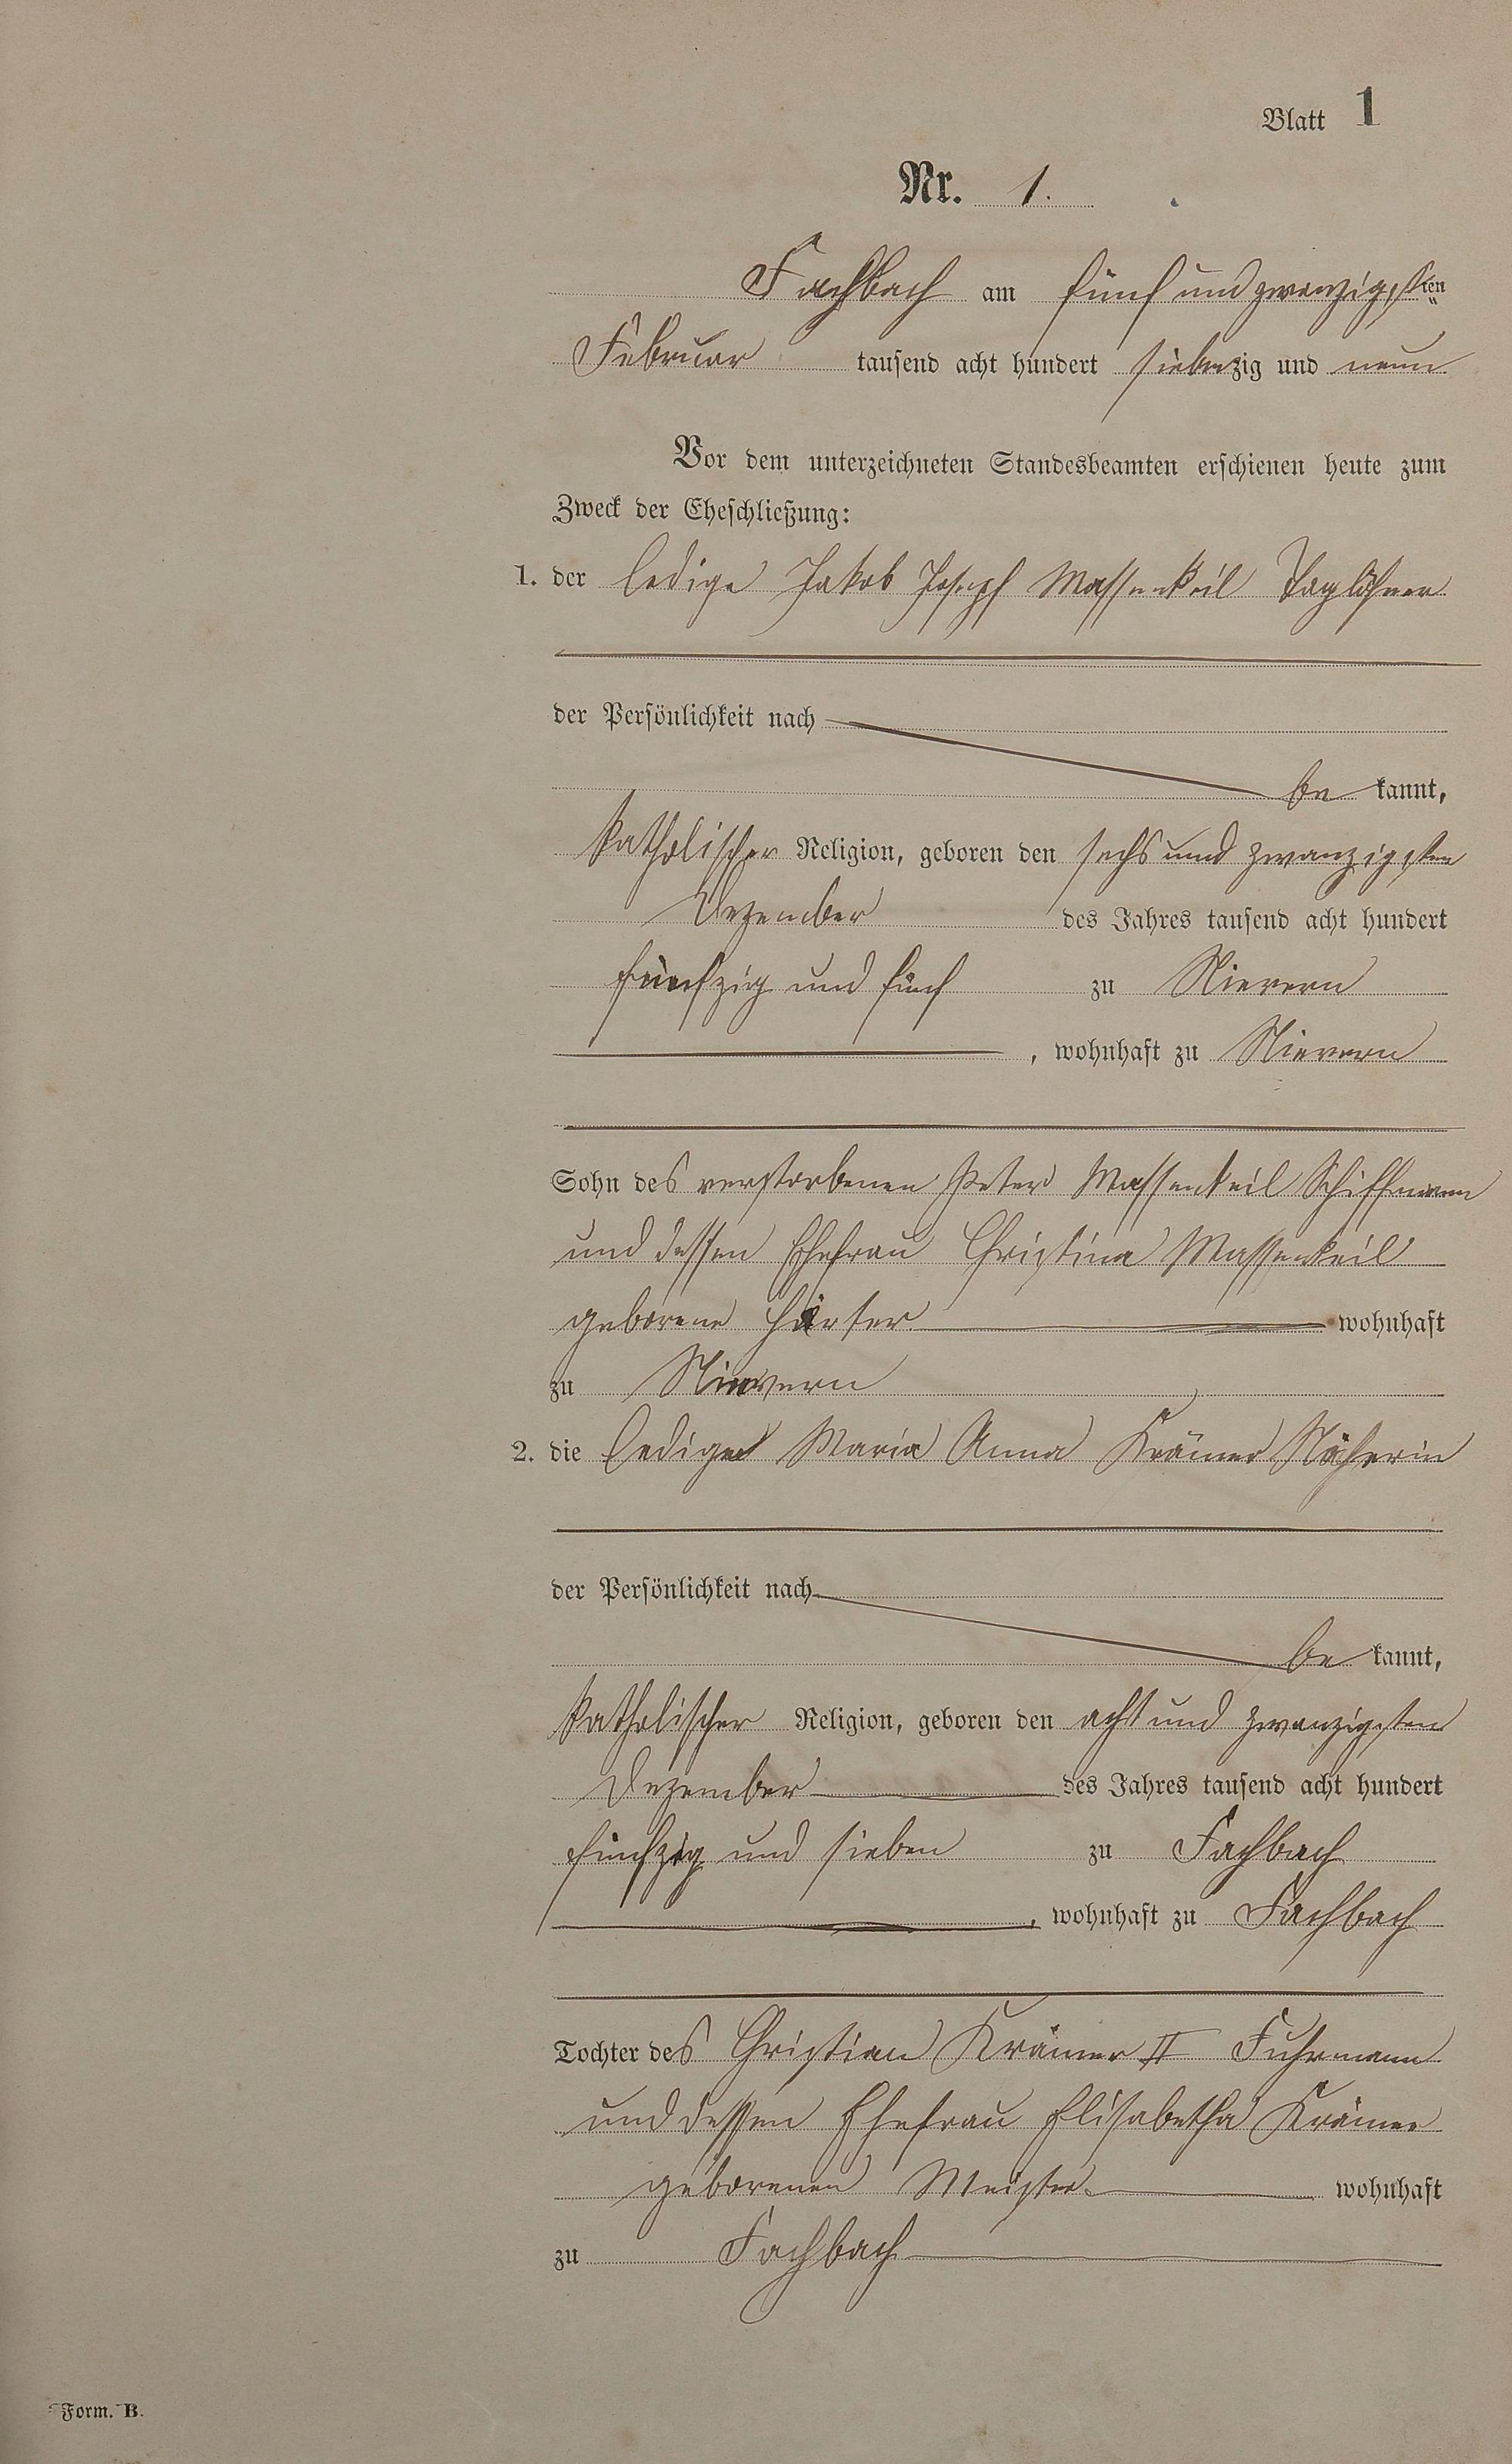 Blatt 1
Nr. 1.
Fachbach am fünf und zwanzigsten
Februar tausend acht hundert siebenzig und neun
Vor dem unterzeichneten Standesbeamten erschienen heute zum
Zweck der Eheschließung:
1. der ledige Jakob Joseph Massenkeil Taglöhner
der Persönlichkeit nach
be kannt,
katholischer Religion, geboren den sechs und zwanzigsten
Dezember des Jahres tausend acht hundert
fünfzig und fünf zu Nievern
, wohnhaft zu Nievern
Sohn des verstorbenen Peter Massenkeil Schiffmann
und dessen Ehefrau Christina Massenkeil
geborene Härter wohnhaft
zu Nievern
2. die ledige Maria Anna Krämer Näherin
der Persönlichkeit nach
be kannt,
katholischer Religion, geboren den acht und zwanzigsten
Dezember des Jahres tausend acht hundert
fünfzig und sieben zu Fachbach
, wohnhaft zu Fachbach
Tochter des Christian Krämer II Fuhrmann
und dessen Ehefrau Elisabetha Krämer
geborenen Meister wohnhaft
zu Fachbach
Form. B.